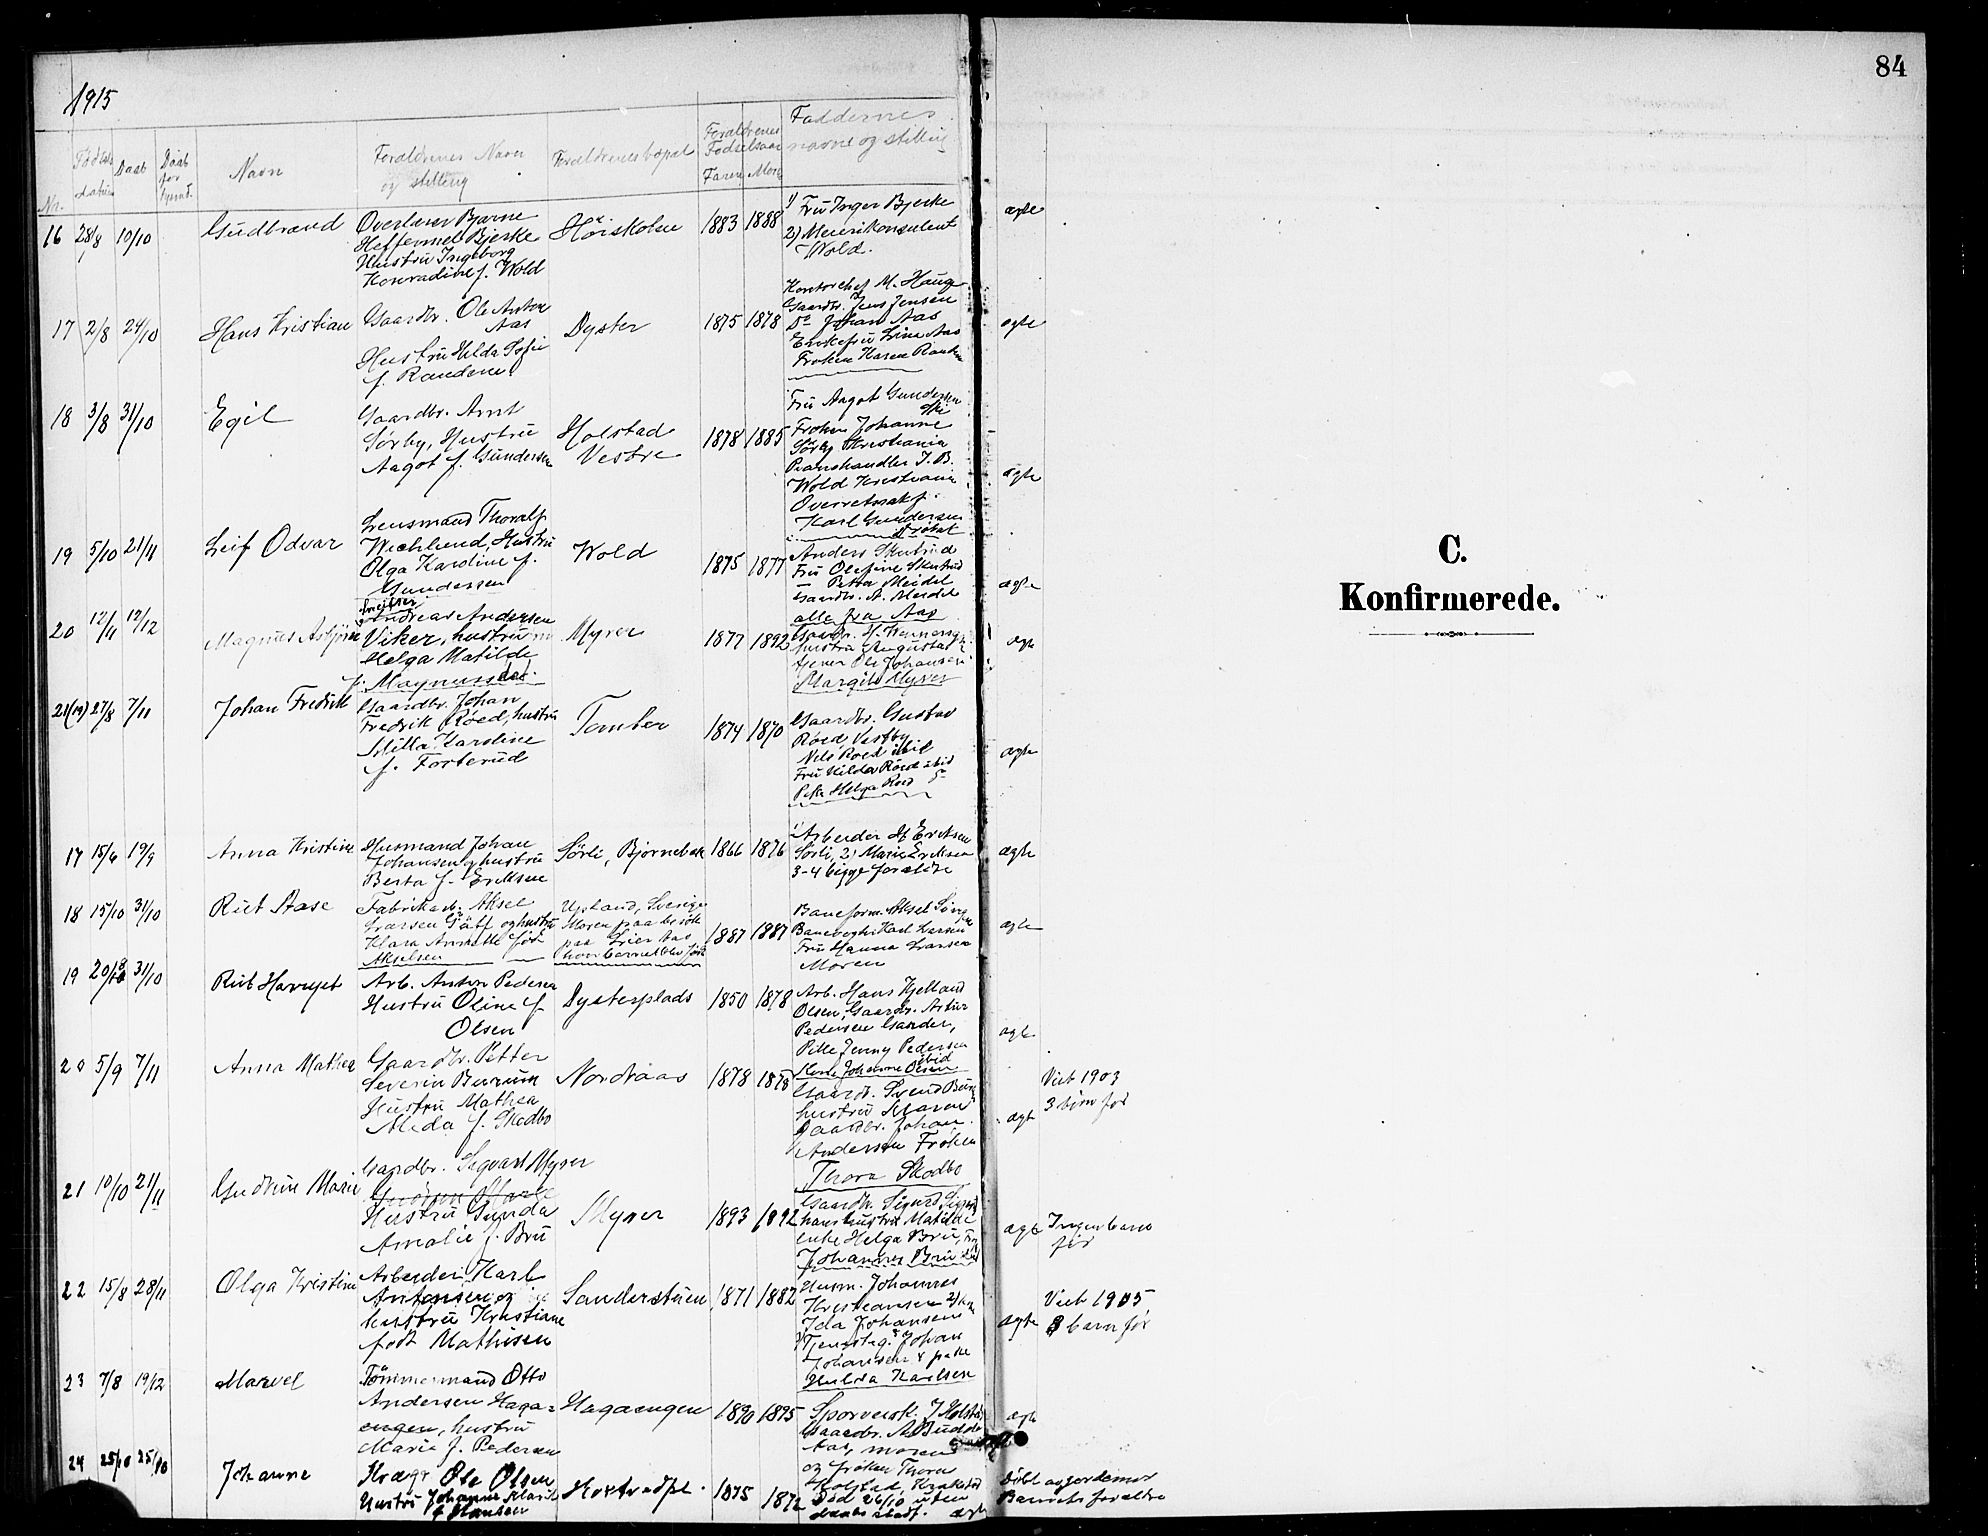 84
1915
Nr.
Fødselsdatum
Daab
Navn
Forældrenes Navn og stilling
Forældrenes bopæl
Forældrenes Fødselsaar
Faren
Mors
Faddernes navne og stilling
16 28/8 10/10 Gudbrand
Overlærer Bjarne
Bjerke
Hustru Ingeborg
Konradine f. Wold
1883 1888
1) Fru Inger Bjerke
2) Meierikonsulent
Wold.
ægte
17 2/8 24/10 Hans Kristian
Gaardbr. Ole Anton
Aas
Hustru Hilda Sofie
f. Randem
Dyster
1875 1878
Kontorchef M. Hauge
Gaardbr. Jens Jensen
Do Johan Aas
Enkefru Line Aas
Frøken Karen
ægte
18 3/8 31/10 Egil
Gaardbr. Arnt
Sørby, Hustru
Aagot f. Gundersen
Holstad
Vestre
1878 1885
Fru Aagot Gundersen
Ski
Frøken Johanne
Sørby Kristiania
Pianohandler I. B.
Wold Kristiania
Overretssakf.
Karl Gundersen
ægte
19 5/10 21/11 Leif Odvar
Lensmand Thoralf
Wichlund, Hustru
Olga Karoline f.
Gundersen
Wold
1875 1877
Anders Skuterud
Fru Olefine Skuterud
Petra Meidel
Gaardb. A. Meidel
alle fra Aas
ægte
20 12/11 12/12 Magnus Asbjørn
Andreas Andersen
Viker, hustru
Helga Matilde
f. Magnussen
Myrer
1877 1892
hustru Augusta
tjener Ole Johansen
Margit Myrer
ægte
21(19) 27/8 7/11 Johan Fredrik
Gaardbr. Johan
Fredrik Røed, hustru
Milla Karoline
f. Forterud
Tomter
1874 1870
Gaardbr. Gustav
Røed Vestby
Nils Roed ibid
Fru Hilda Røed ibid
Pike Helga Roed
ægte
17 15/6 19/9 Anna Kristine
Husmand Johan
Johansen og hustru
Berta f. Eriksen
Sørli, Bjørnebek
1866 1876
1) Arbeider H. Eriksen
Sørli, 2) Marie Eriksen
3-4 begge forældre
ægte
18 15/10 31/10 Rut Aase
Fabrikarb. Aksel
Larsen og hustru
Klara Annette født
Akselsen
Upland, Sverige
Moren paa besøk
paa Lier Aas
hvor barnet blev født
1887 1887
Baneform. Aksel
Banevogter Karl Larsen
Fru Hanna Larsen
Moren
ægte
19 20/10 31/10 Rut Harriet
Arb. Anton Pedersen
Hustru Oline f.
Olsen
Dysterplads
1850 1878
Arb. Hans Kjelland
Olsen, Gaardbr. Artur
Pedersen Garder,
Pike Jenny Pedersen
ibid
Johanne Olsen
ægte
20 5/9 7/11 Anna Mathea
Gaardbr. Petter
Severin Burum
Hustru Mathea
Alida f. Skodbo
Nordraas
1878 1878
Gaardb. Svend
hustru Maren
Gaardbr. Johan
Andersen Frøken
Thora Skodbo
ægte
Viet 1903
3 børn før
21 10/10 21/11 Gudrun Marie
Gaardbr. Sigvart Myrer
Gudrun Marie
Hustru Gunda
Amalie f. Bru
Myrer
1893 1892
Gaardbr. Sigurd
hans hustru Matilde
enke Helga Bru,
Johannes Bru
ægte
Ingen barn
før
22 15/8 28/11 Olga Kristine
Arbeider Karl
Antonsen og
hustru Kristiane
født Mathisen
Sanderstuen
1871 1882
Husm. Johannes
Kristiansen 2)
Ida Johansen
3) Tjenesteg. Johan
Johansen 4 pike
Hulda Karlsen
ægte
Viet 1905
3 barn før
23 7/8 19/12 Marvel
Tømmermand Otto
Andersen Haga-
engen, hustru
Marie f. Pedersen
Hagaengen
1890 1895
J. Holstad
Gaardbr.
Aas, moren
og frøken Thora
Holstad, Kraakstad
ægte
24 25/10 25/10 Johanne
Ole Olsen
Hustru Johanne
f. Hansen
1875 1872
Død 26/10 uten
daabsattest.
ægte
Døbt av jordemor
Barnets forældre
C.
Konfirmerede.